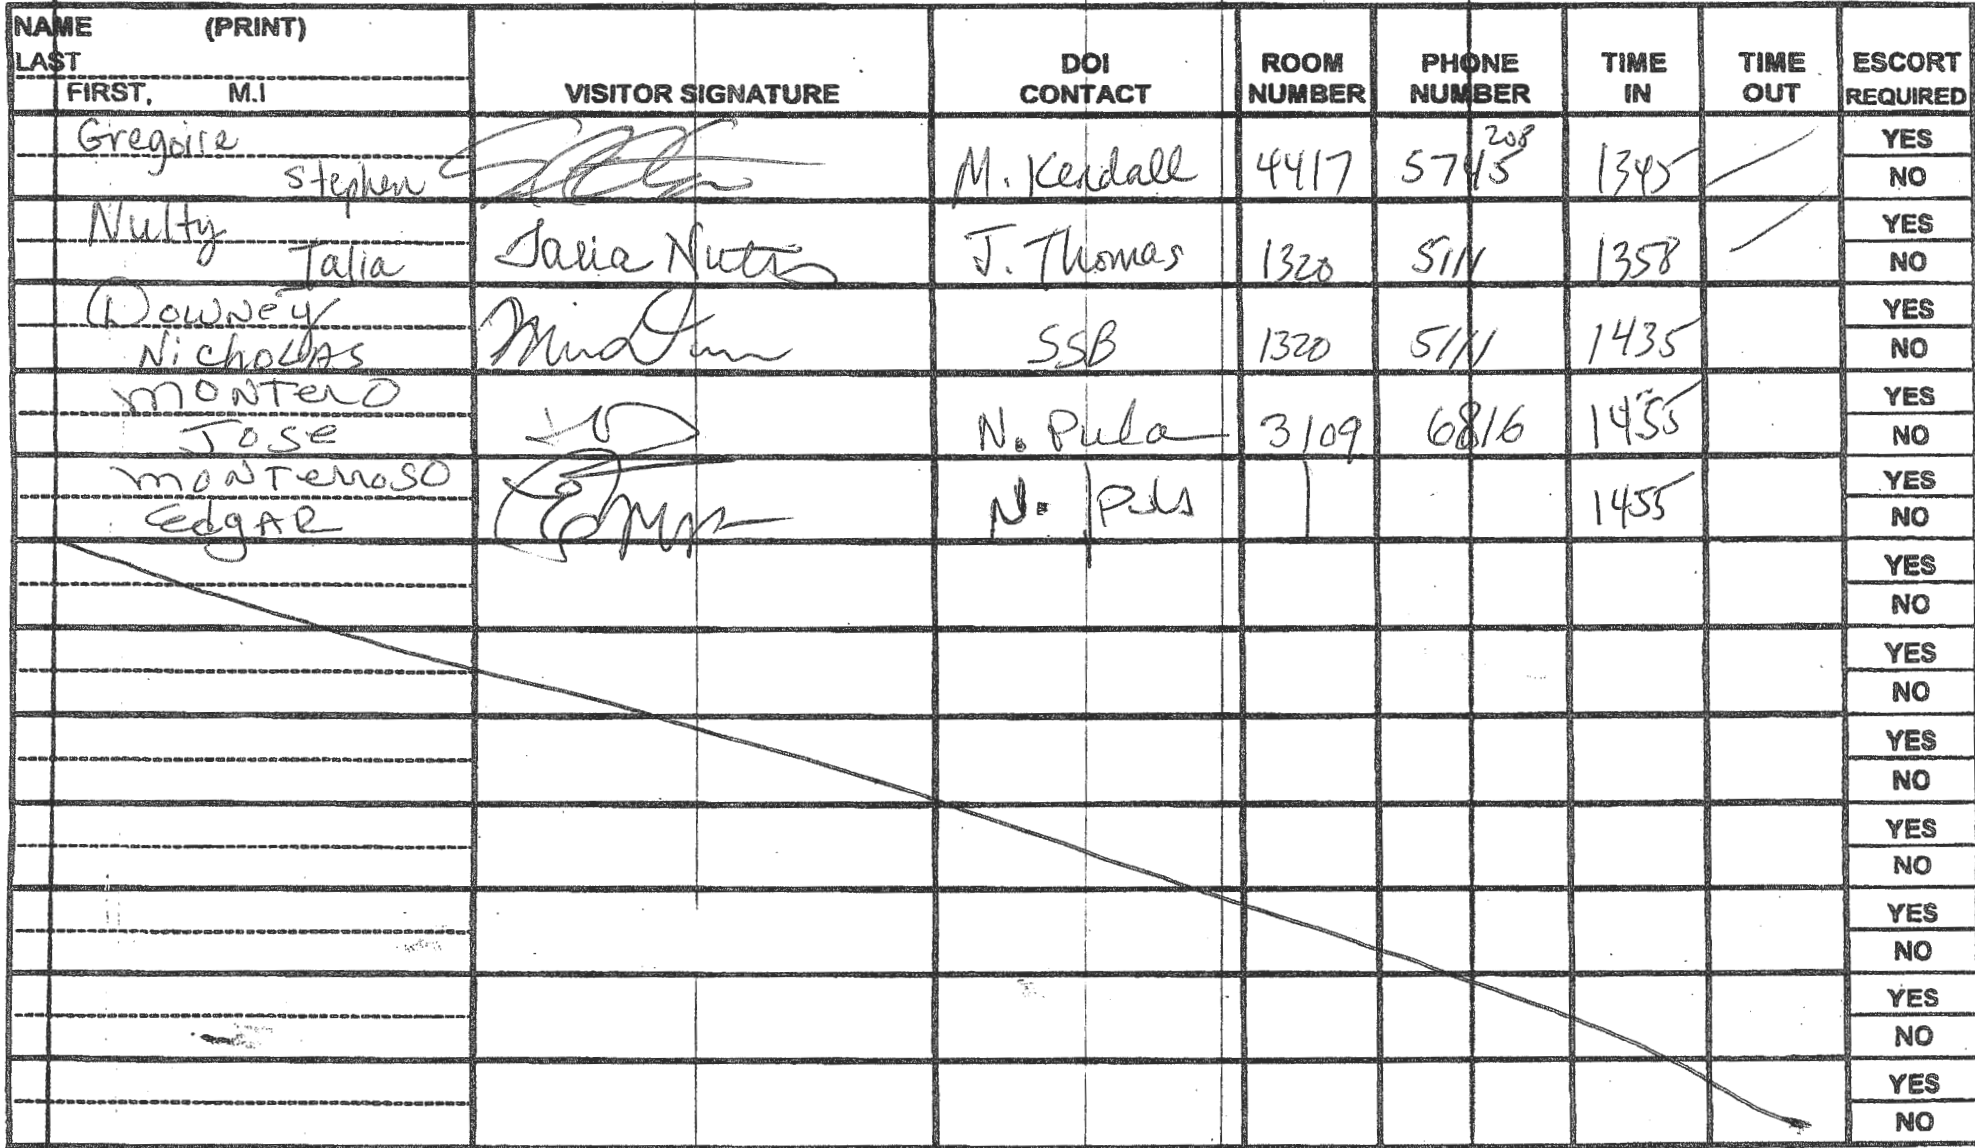 NAME (PRINT)
LAST
FIRST, M.I
VISITOR SIGNATURE
DOI CONTACT
ROOM NUMBER
PHONE NUMBER
TIME IN
TIME OUT
ESCORT REQUIRED
Gregoire
Stephen M. Kendall 4417 208 5745 1345 YES NO
Nulty
Talia Talia Nulty J. Thomas 1320 5111 1358 YES NO
Downey
Nicholas SSB 1320 5111 1435 YES NO
Montero
Jose N. Pula 3109 6816 1455 YES NO
Monterroso
Edgar N. Puls 1455 YES NO
YES NO
YES NO
YES NO
YES NO
YES NO
YES NO
YES NO